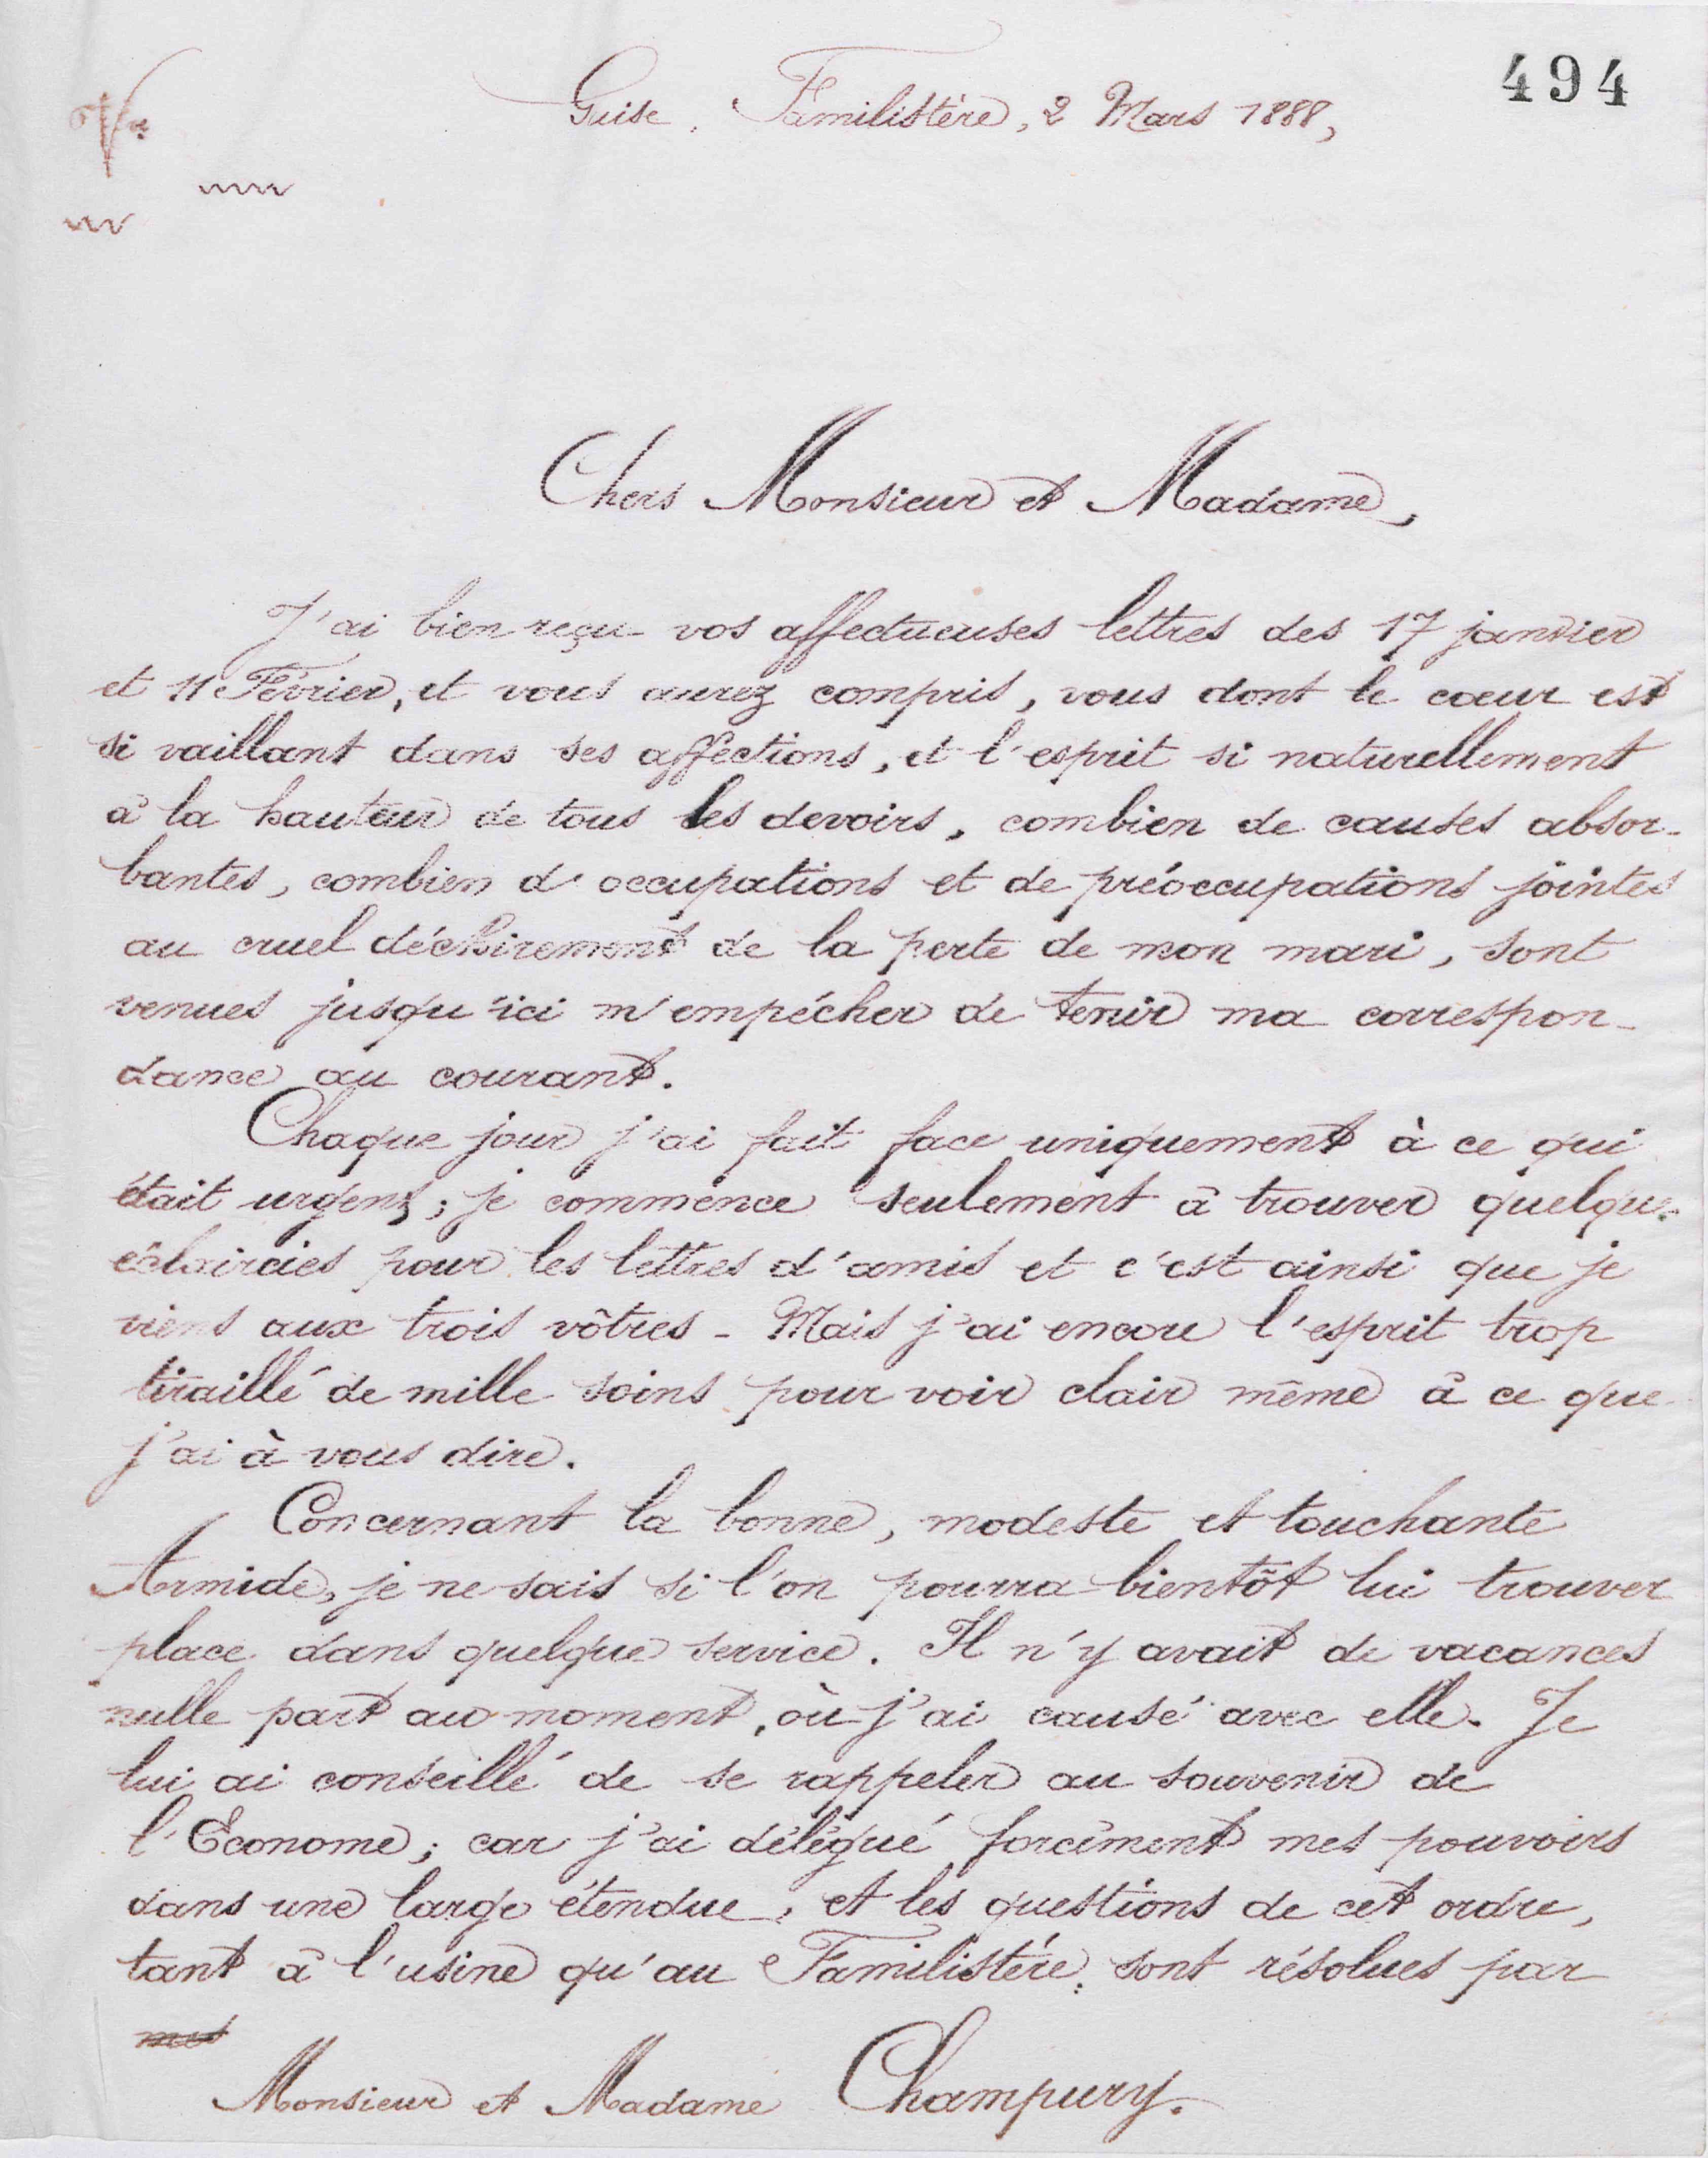 494
Guise, Familistère, 2 Mars 1888,
Chers Monsieur et Madame,
J'ai bien reçu vos affectueuses lettres des 17 janvier
et 11 Février, et vous aurez compris, vous dont le cœur est
si vaillant dans ses affections, et l'esprit si naturellement
à la hauteur de tous les devoirs, combien de causes absor-
bantes, combien d'occupations et de préoccupations jointes
au cruel déchirement de la perte de mon mari, sont
venues jusqu'ici m'empêcher de tenir ma correspon-
dance au courant.
Chaque jour j'ai fait face uniquement à ce qui
était urgent; je commence seulement à trouver quelques
éclaircies pour les lettres d'amis et c'est ainsi que je
viens aux trois vôtres - Mais j'ai encore l'esprit trop
tiraillé de mille soins pour voir clair même à ce que
j'ai à vous dire.
Concernant la bonne, modeste et touchante
Armide, je ne sais si l'on pourra bientôt lui trouver
place dans quelque service. Il n'y avait de vacances
nulle part au moment, où j'ai causé avec elle. Je
lui ai conseillé de se rappeler au souvenir de
l'Econome; car j'ai délégué forcément mes pouvoirs
dans une large étendue, et les questions de cet ordre,
tant à l'usine qu'au Familistère, sont résolues par
mes
Monsieur et Madame Champury.